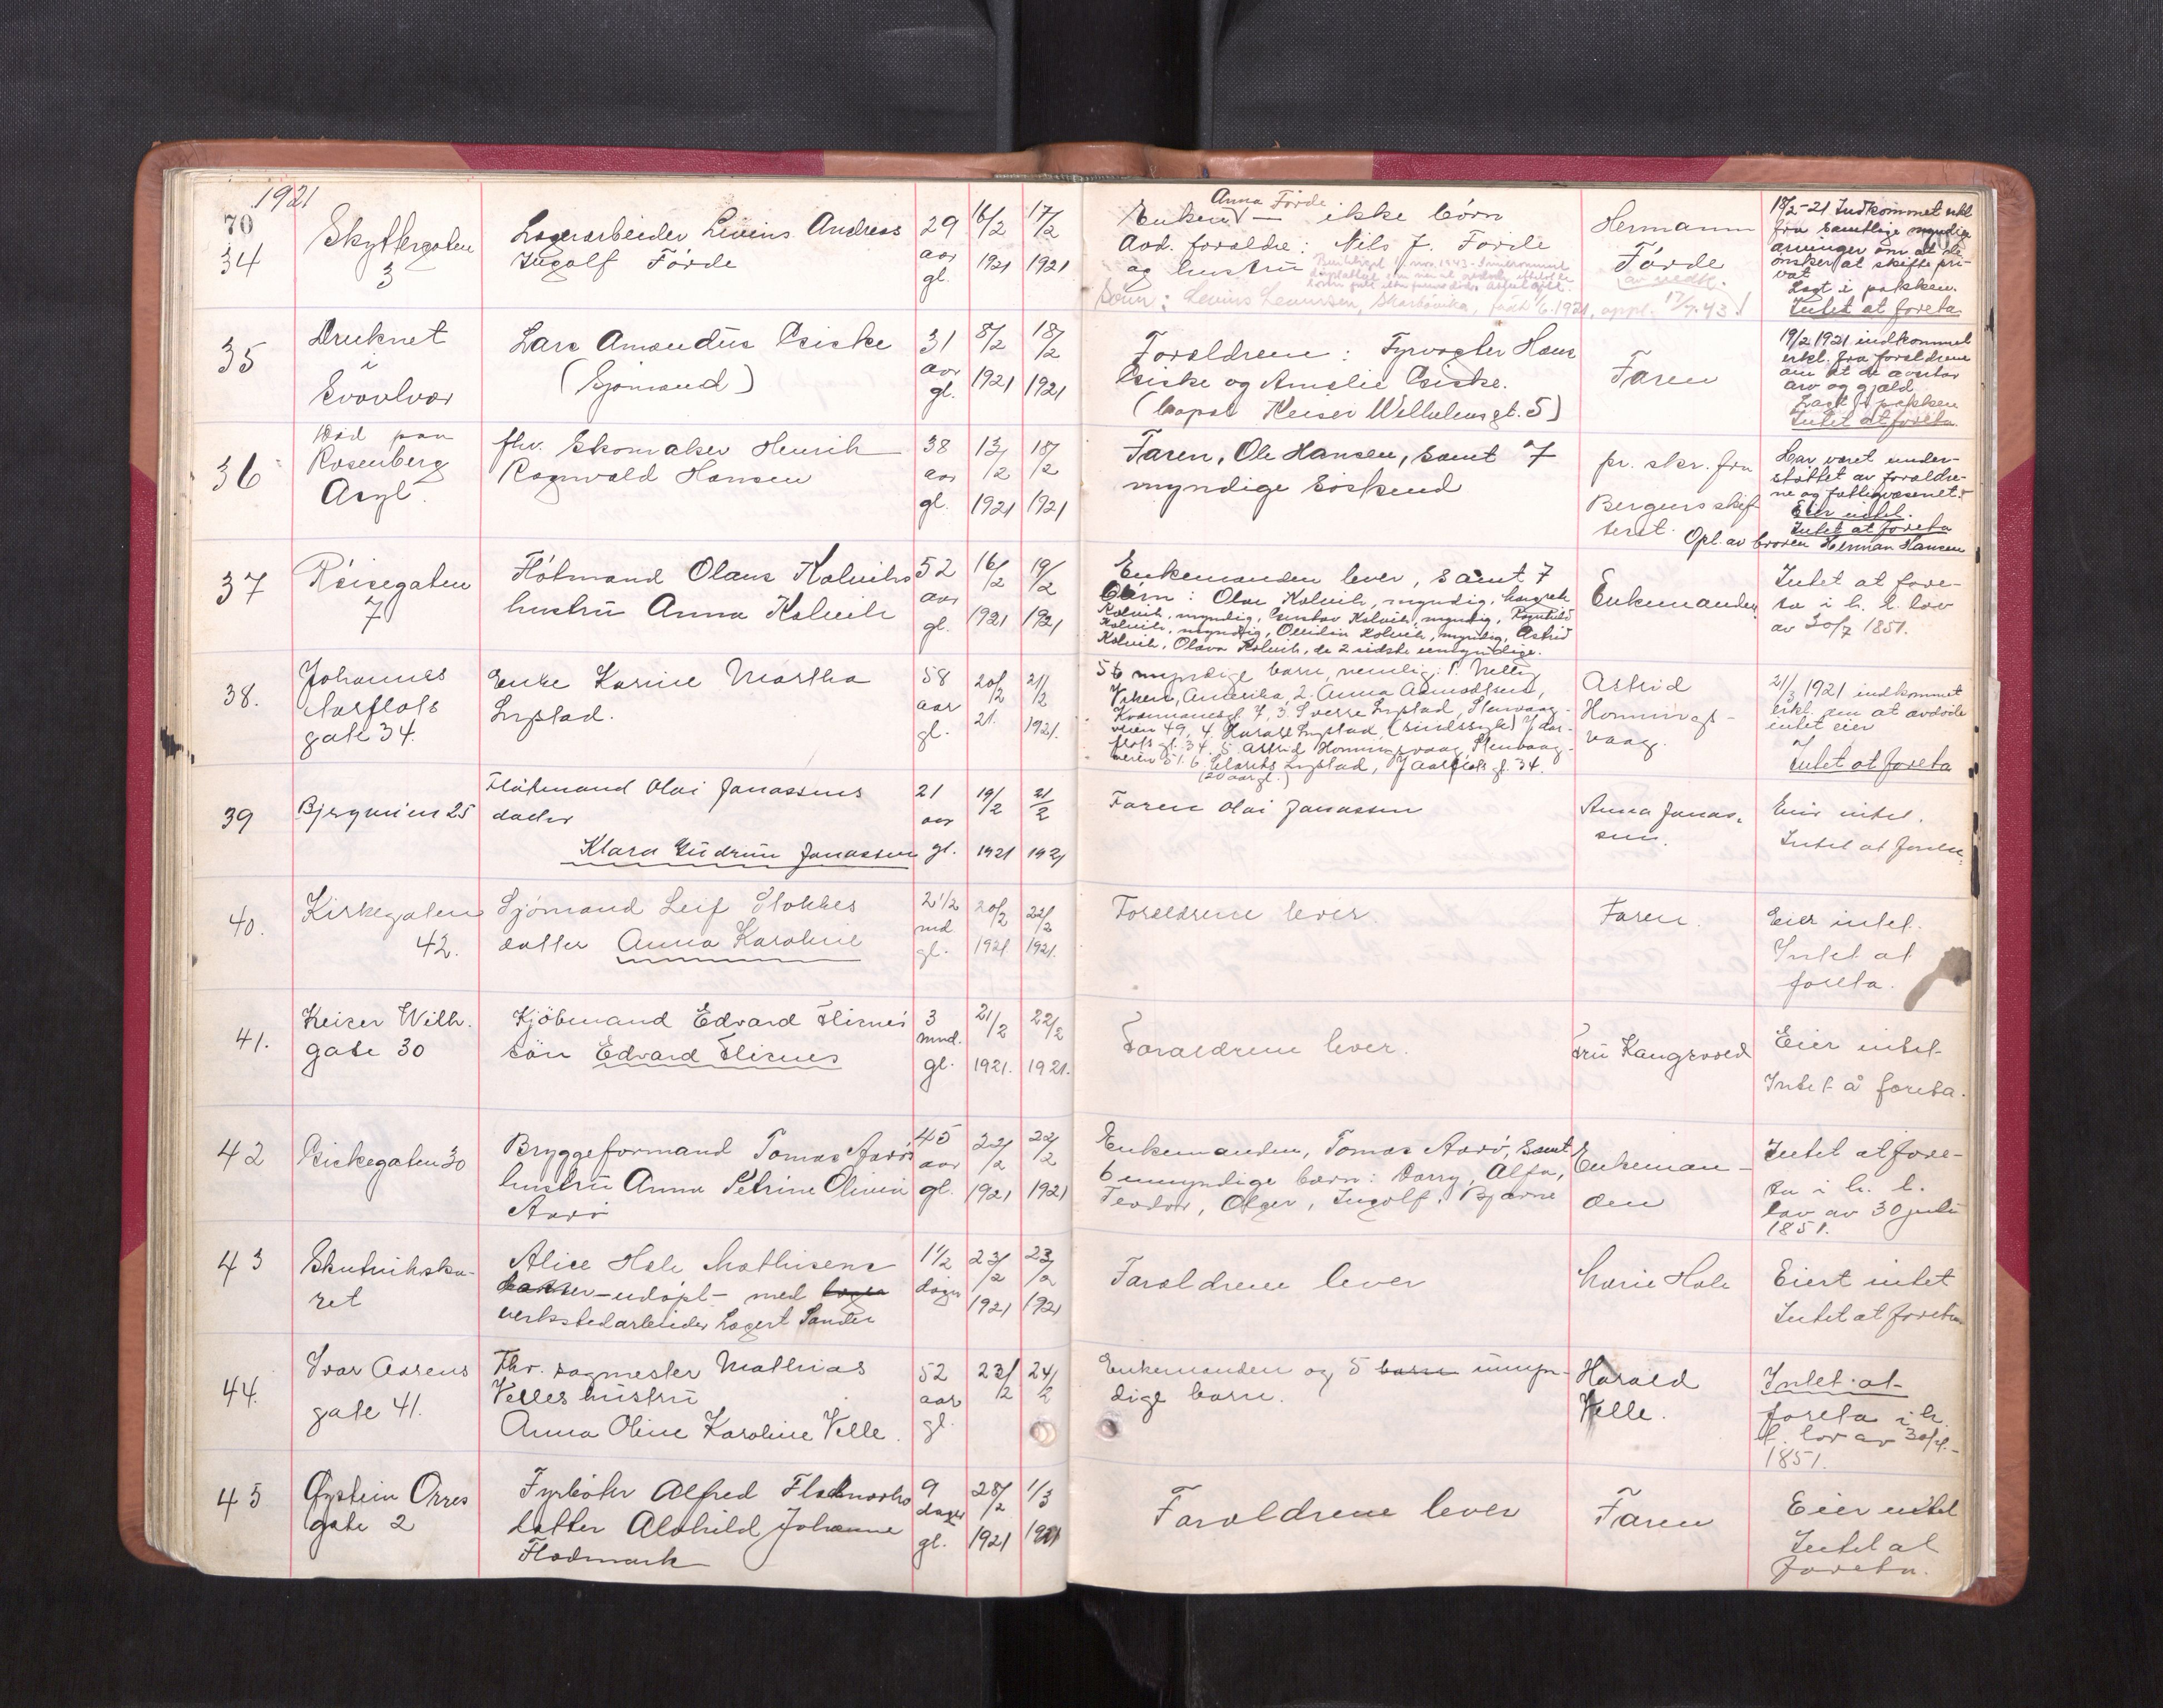 1921
70
34
Skyttergaten
3
Lagerarbeider Livius Andreas
Ingolf Förde
29
aar
gl.
16/2
1921
17/2
1921
Anna Förde
Enken — ikke börn
Avd. foraldre: Nils J. Förde
og hustru
Sönn: Levius Levinsen, Skarbövika, födt 1/6.1921, appl. 17/9.43
Hermann
Förde
18/2-21 Indkommet erkl
fra samtlige myndige
arvinger om at de
önsker at skifte pri-
vat
Lagt i pakken.
Intet at foreta
35
Druknet
i
Svovlvær
Lars Amandus Giske
(Sjömand)
31
aar
gl.
8/2
1921
18/2
1921
Foraldrene: Fyrvogter Hans
Giske og Amalie Giske.
(bopæl Keiser Wilhelmsgt. 5)
Faren
19/2 1921 indkommet
erkl. fra foraldrene
om at de overtar
arv og gjæld
Lagt i pakken
Intet at foreta
36
Död paa
Rosenberg
Asyl.
fhv. Skomaker Henrik
Ragnvald Hansen
38
aar
gl.
13/2
1921
18/2
1921
Faren, Ole Hansen, samt 7
myndige söskend
pr. skr. fra
Bergens skif
teret.
Har været under-
støttet av foraldre-
ne og fattigvæsenet.
Eier intet.
Intet at foreta
Opl. av broren Herman Hansen
37
Röisegaten
7
Flötmand Olaus Kolviks
hustru Anna Kolvik
52
aar
gl.
16/2
1921
19/2
1921
Enkemanden lever, samt 7
Börn: Olav Kolvik, myndig,
Kolvik, myndig, Gustav Kolvik, myndig, Ragnhild
Kolvik, myndig, Ovidia Kolvik, myndig, Astrid
Kolvik, Olava Kolvik, de 2 sidste umyndige.
Enkemanden
Intet at fore-
ta i h. t. lov
av 30/7 1851.
38.
Johannes
Aarflots
gate 34.
Enke Karine Martha
Lystad.
58
aar
gl.
20/2
21.
21/2
1921.
56 myndige barn, nemlig: 1. Nelly
Amerika, 2. Anna Aamodtsen,
7, 3. Sverre Lystad, Stenvaag-
veien 49, 4. Harald Lystad, (sindssyk) J. Aar-
flots gt. 34. 5. Astrid Honningsvaag, Stenvaag-
veien 51. 6. Lystad, J Aarflots g. 34.
(20 aar gl.)
Astrid
Honnings-
vaag.
21/3 1921 indkommet
erkl. om at avdöde
intet eier
Intet at foreta
39
Bjergveien 25
Flötmand Olai Janassens
datter
Klara Gudrun Janassen
21
aar
gl.
19/2
1921
21/2
1921
Faren Olai Janassen
Anna Janas-
sen.
Eier intet.
Intet at foreta
40.
Kirkegaten
42.
Sjömand Leif Slokkes
datter Anna Karoline
2 1/2
md
gl.
20/2
1921
22/2
1921.
Foreldrene lever.
Faren.
Eier intet.
Intet at
foreta.
41.
Keiser Wilh.
gate 30
Kjöbmand Edvard Flisnes
sön Edvard Flisnes
3
mnd.
gl.
21/2
1921.
22/2
1921.
Foraldrene lever.
Fru Kangsvold
Eier intet
Intet å foreta.
42
Giskegaten 30
Bryggeformand Tomas Aarös
hustru Anna Petrine Olivia
Aarö
45
aar
gl.
22/2
1921
22/2
1921
Enkemanden, Tomas Aarö, samt
6 umyndige barn: Harry, Alfa,
Teodor, Olger, Ingolf, Bjarne
Enkeman-
den
Intet at fore-
ta i h. t.
lov av 30 juli
1851.
43
Skutvikska-
ret
Alice Hole Mathisens
datter – udöpt – med
verkstedarbeider Lagert Sander
1 1/2
dögn
23/2
1921
23/2
1921
Foraldrene lever
Marie Hole
Eiert intet
Intet at foreta
44.
Ivar Aasens
gate 41.
Fhv. sagmester Mathias
Velles hustru
Anna Oline Karoline Velle.
52
aar
gl.
23/2
24/2
Enkemanden og 5 barn umyn-
dige barn.
Harald
Velle.
Intet at
foreta i h.
t. lov av 30/7.-
1851.
45
Øystein Orres
gate 2
Fyrböter Alfred Flodmarks
datter Alvhild Johanne
Flodmark
9
dager
gl.
28/2
1921
1/3
1921
Foraldrene lever
Faren
Eier intet
Intet at
foreta.